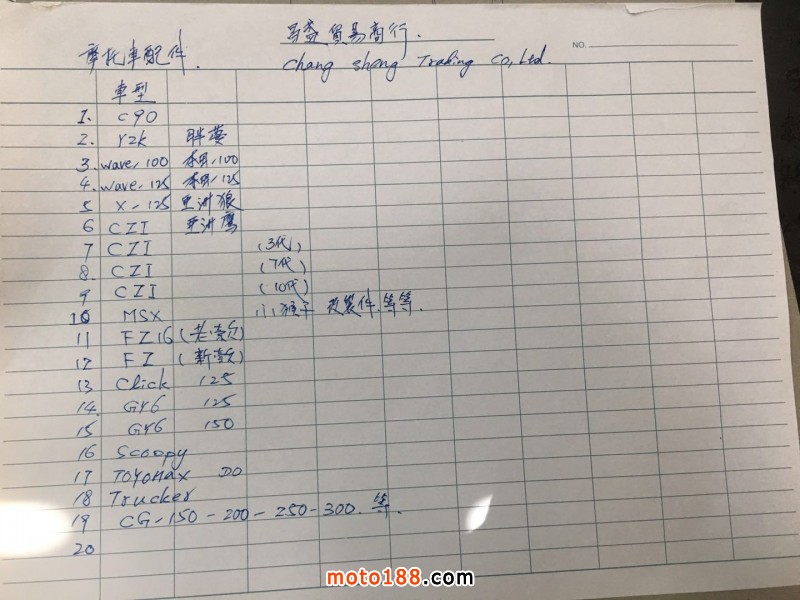 貿易商行.
NO.
摩托車配件.
Chang sheng Trading Co,Ltd.
車型
1. C90
2. Y2k 胖
3. wave,100 100
4. wave,125 125
5 X-125 亚洲狼
6 CZI 亚洲鹰
7 CZI (3代)
8. CZI (7代)
9 CZI (10代)
10 MSX 小猴子 改裝件.等等.
11 FZ16 (老款)
12 FZ (新款)
13 Click 125
14. GY6 125
15 GY6 150
16 Scoopy
17 TOYOMAX DO
18 Trucker
19 CG-150-200-250-300.等.
20
moto188.com